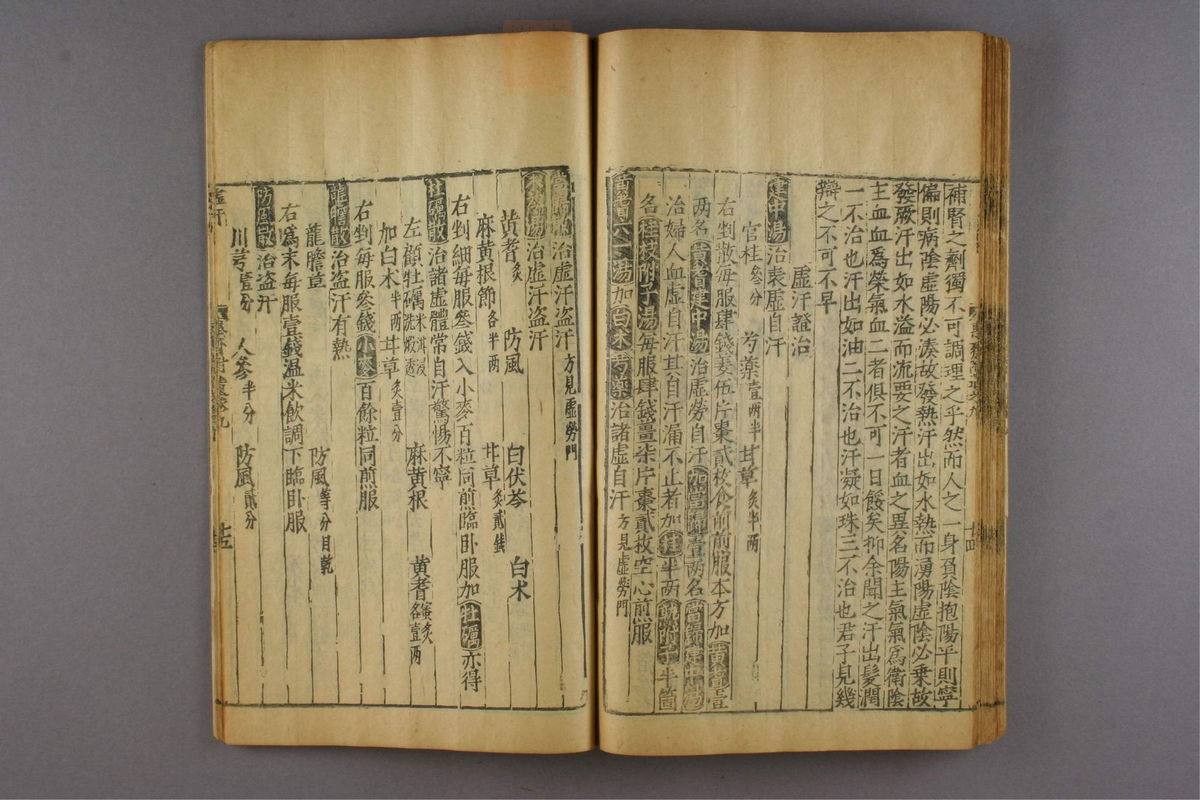 補腎之劑獨不可調理之乎然而人之一身負陰抱陽平則寧
偏則病陰虛陽必湊故發熱汗出如水熱而湧陽虛陰必乘故
發厥汗出如水溢而流要之汗者血之異名陽主氣氣爲衛陰
主血血爲榮氣血二者俱不可一日餒矣抑余聞之汗出髮潤
一不治也汗出如油二不治也汗凝如珠三不治也君子見幾
辯之不可不早
虛汗證治
建中湯治表虛自汗
官桂叁分 芍藥壹兩半 甘草炙半兩
右剉散每服肆錢姜伍片棗貳枚食前煎服本方加黃耆壹
兩名黃耆建中湯治虛勞自汗加當歸壹兩名當歸建中湯
治婦人血虛自汗其自汗漏不止者加桂半兩熟附子半箇
名桂枝附子湯每服肆錢薑柒片棗貳枚空心煎服
黃耆六一湯加白朮芍藥治諸虛自汗方見虛勞門
治虛汗盜汗方見虛勞門
湯治虛汗盜汗
黃耆炙 防風 白伏苓 白朮
麻黃根節各半兩 甘草炙貳錢
右剉細每服叁錢入小麥百粒同煎臨臥服加牡礪亦得
牡礪散治諸虛體常自汗驚惕不寧
左顧牡礪米泔浸洗煅透 麻黃根 黃耆蜜炙各壹兩
加白朮半兩甘草炙壹分
右剉每服叁錢小麥百餘粒同煎服
龍膽散治盜汗有熱
龍膽草 防風等分日乾
右爲末每服壹錢温米飲調下臨臥服
防風散治盜汗
川芎壹分 人參半分 防風貳分